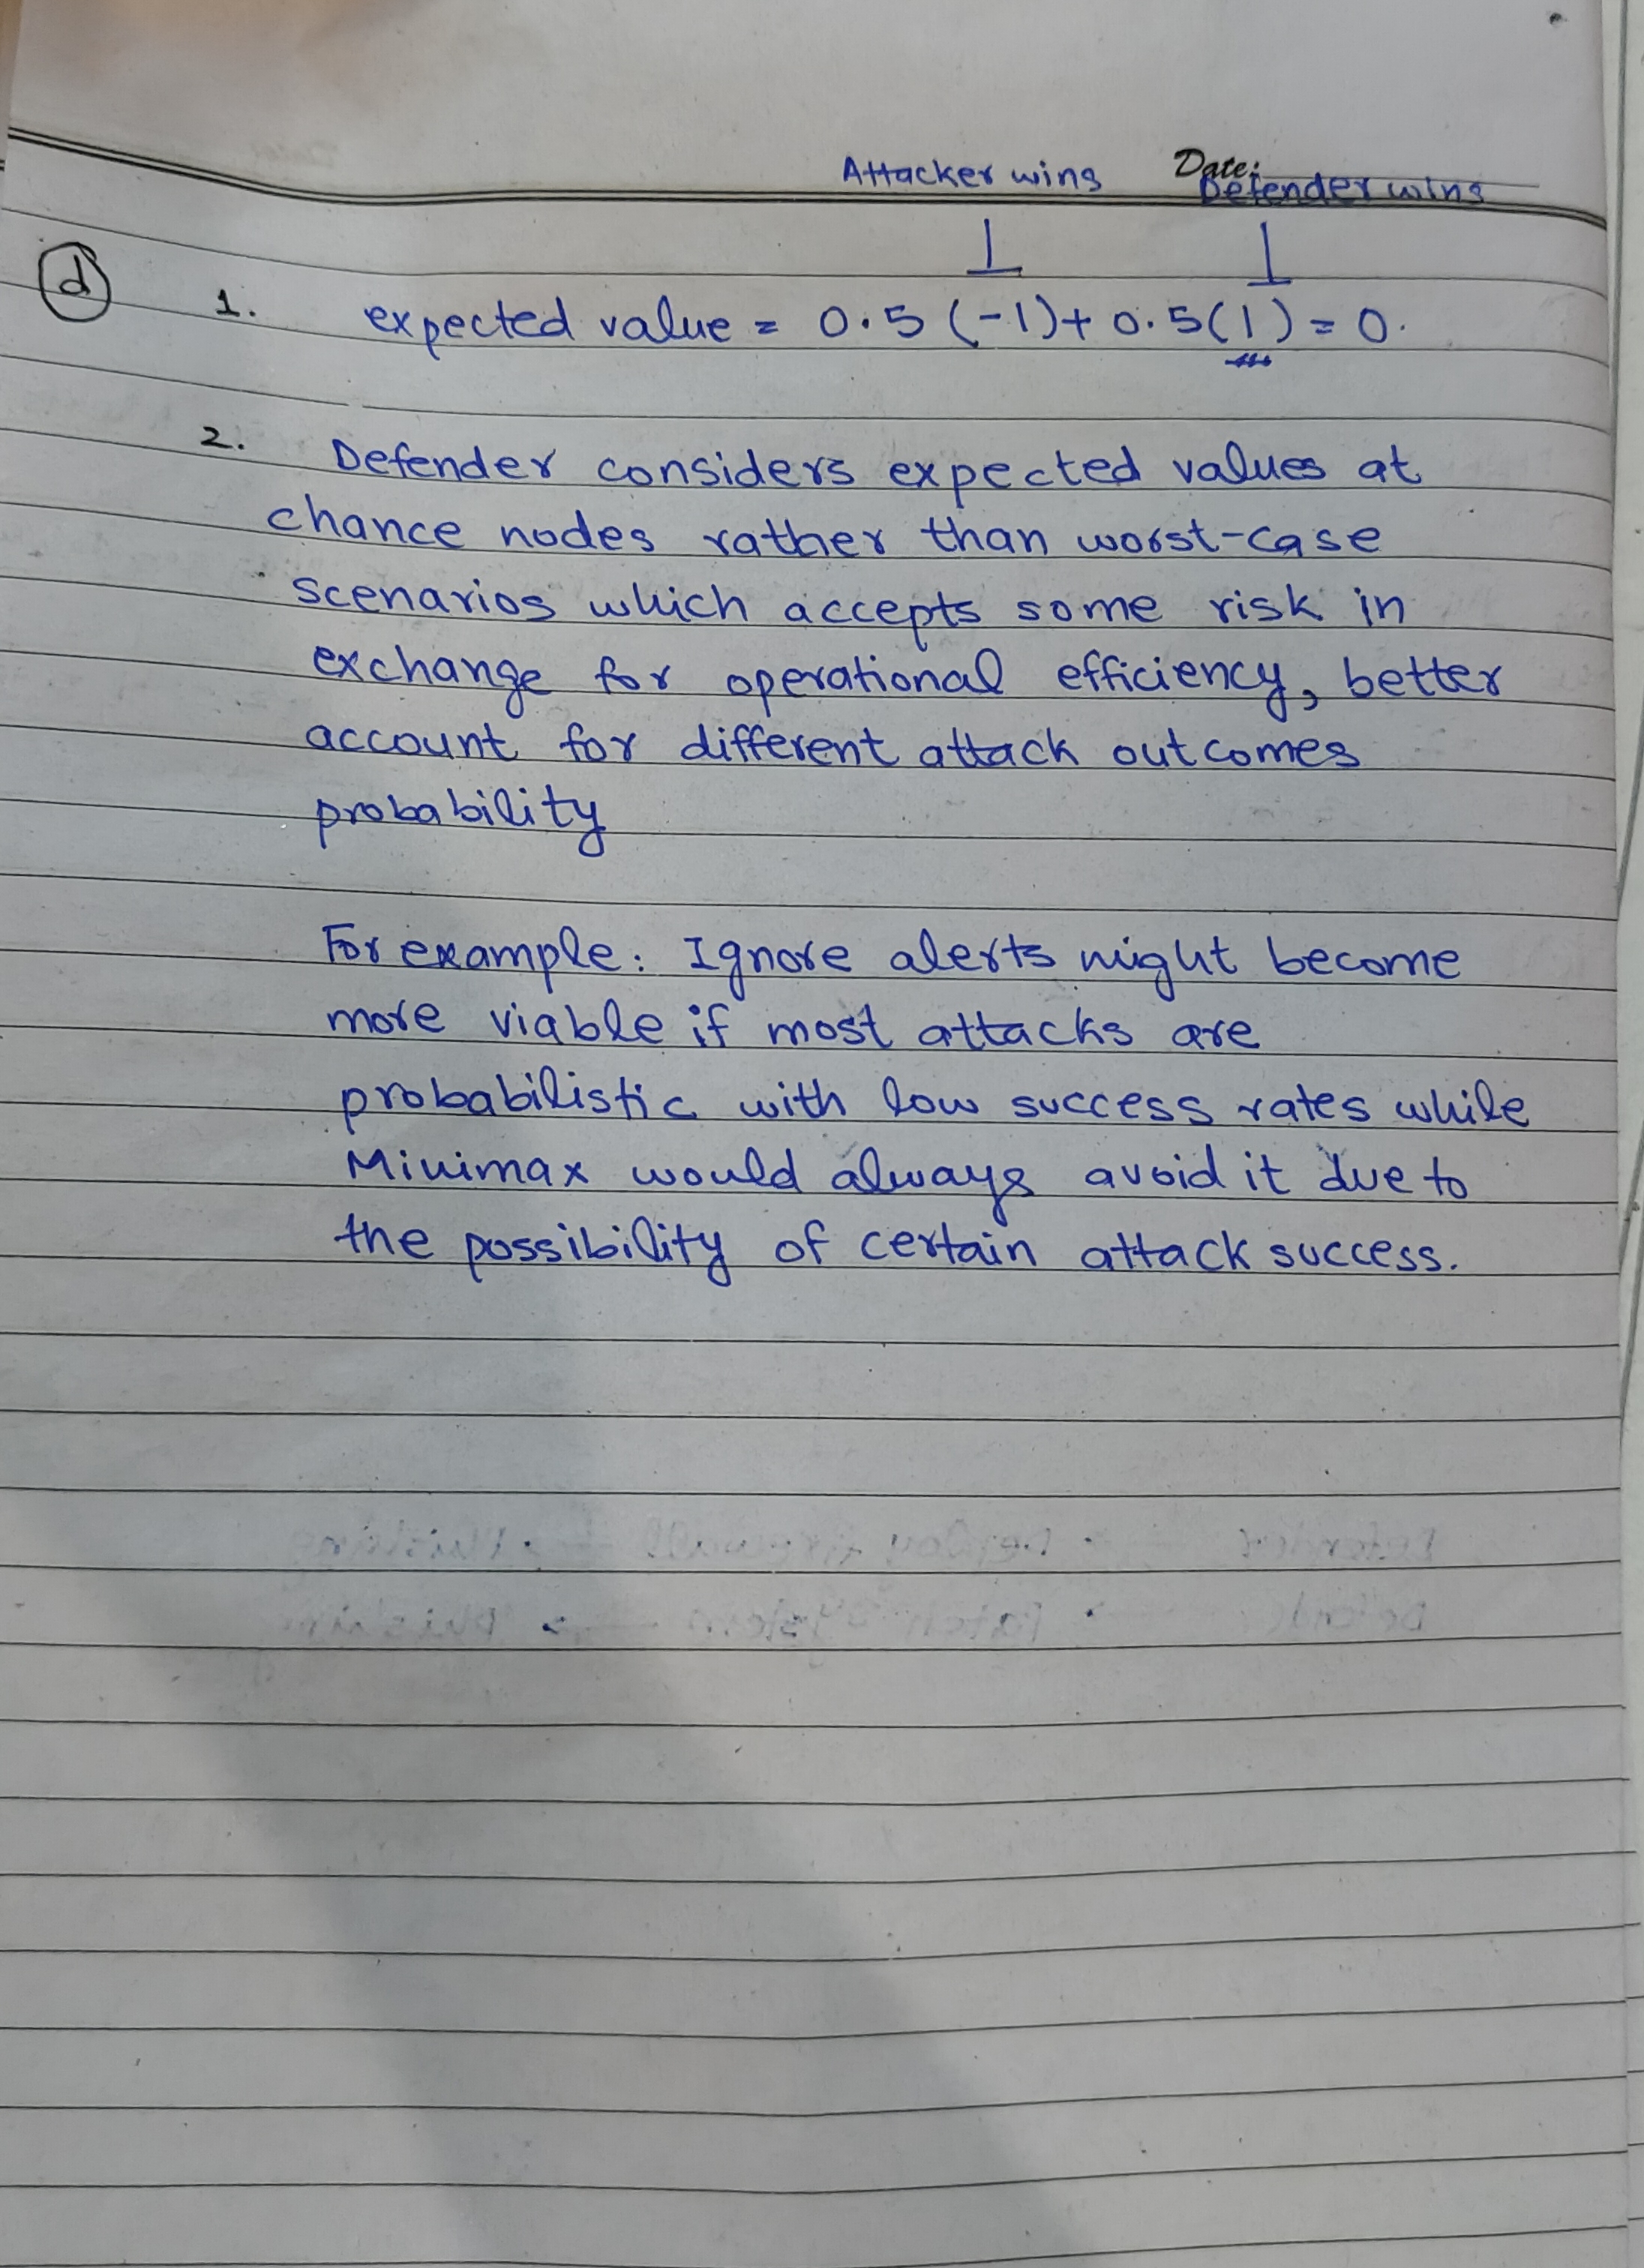 Attacker wins Date:
Defender wins
d 1. expected value = 0.5 (-1) + 0.5(1) = 0.
2. Defender considers expected values at
chance nodes rather than worst-case
scenarios which accepts some risk in
exchange for operational efficiency, better
account for different attack outcomes
probability
For example: Ignore alerts might become
more viable if most attacks are
probabilistic with low success rates while
Minimax would always avoid it due to
the possibility of certain attack success.